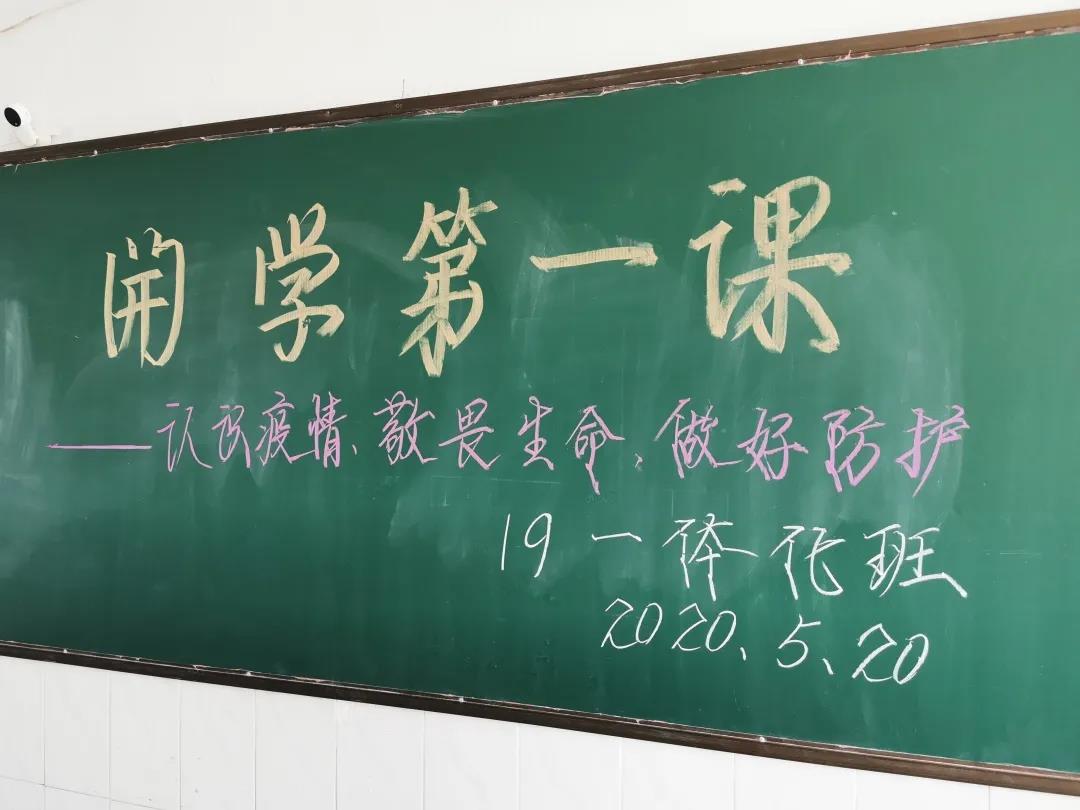 开学第一课
——认识疫情、敬畏生命、做好防护
19一体化班
2020、5、20